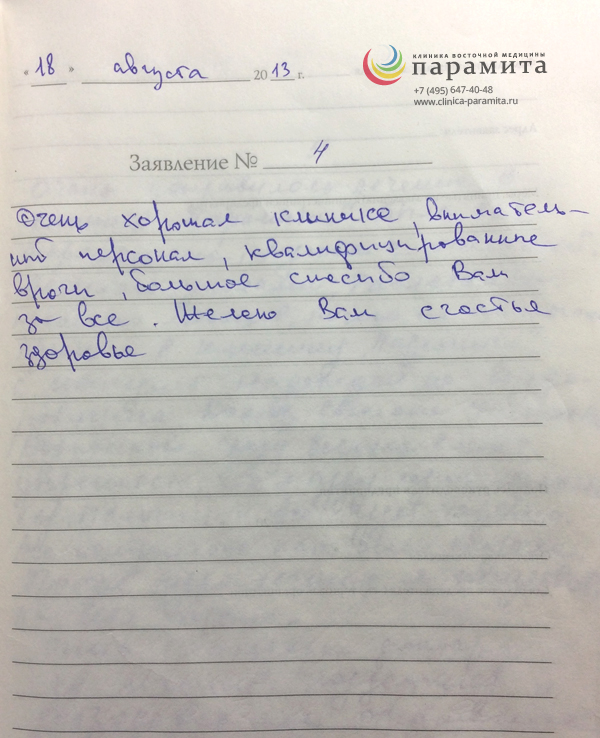 КЛИНИКА ВОСТОЧНОЙ МЕДИЦИНЫ
парамита
+7 (495) 647-40-48
www.clinica-paramita.ru
«18» августа 2013 г.
Заявление № 4
Очень хорошая клинике, вниматель-
ный персонал, квалифицированные
врачи, большое спасибо Вам
за все. Желаю Вам счастья
здоровье